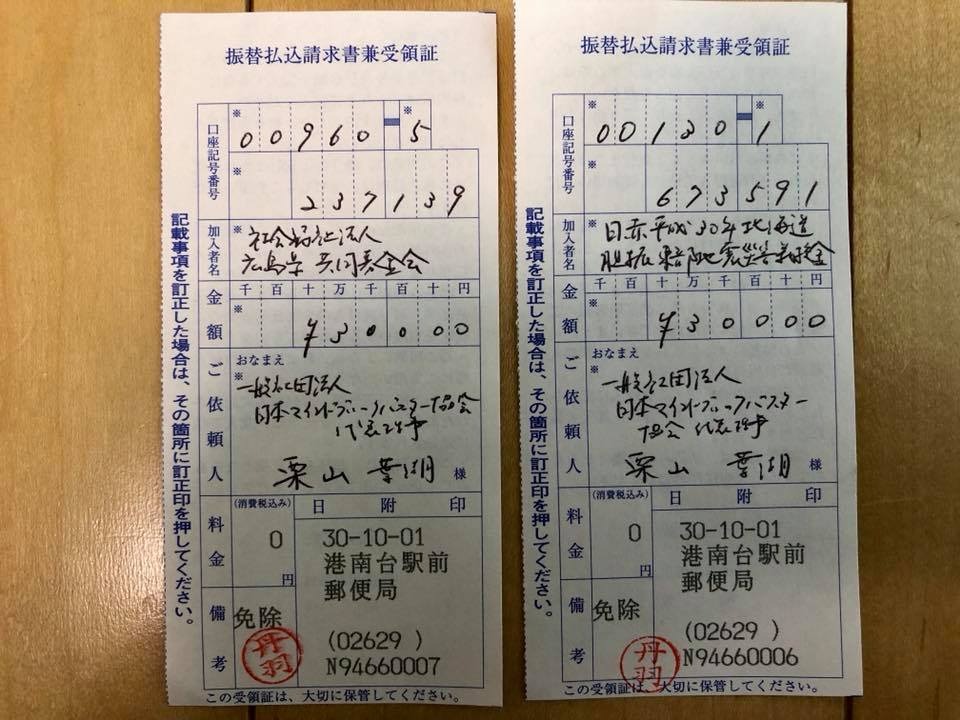 振替払込請求書兼受領証
口座記号番号
※ 00960 - ※ 5
※ 237139
加入者名
※ 社会福祉法人
広島県共同募金会
金額
千百十万千百十円
※ ¥30000
ご依頼人
おなまえ
※ 一般社団法人
日本マインドブロックバスター協会
代表理事
栗山 葉湖 様
料金
(消費税込み)
0
円
日附印
30-10-01
港南台駅前
郵便局
(02629 )
N94660007
備考
免除
丹羽
この受領証は、大切に保管してください。
記載事項を訂正した場合は、その箇所に訂正印を押してください。
振替払込請求書兼受領証
口座記号番号
※ 00130 - ※ 1
※ 673591
加入者名
※ 日赤平成30年北海道
胆振東部地震災害義援金
金額
千百十万千百十円
※ ¥30000
ご依頼人
おなまえ
※ 一般社団法人
日本マインドブロックバスター
協会 代表理事
栗山 葉湖 様
料金
(消費税込み)
0
円
日附印
30-10-01
港南台駅前
郵便局
(02629 )
N94660006
備考
免除
丹羽
この受領証は、大切に保管してください。
記載事項を訂正した場合は、その箇所に訂正印を押してください。